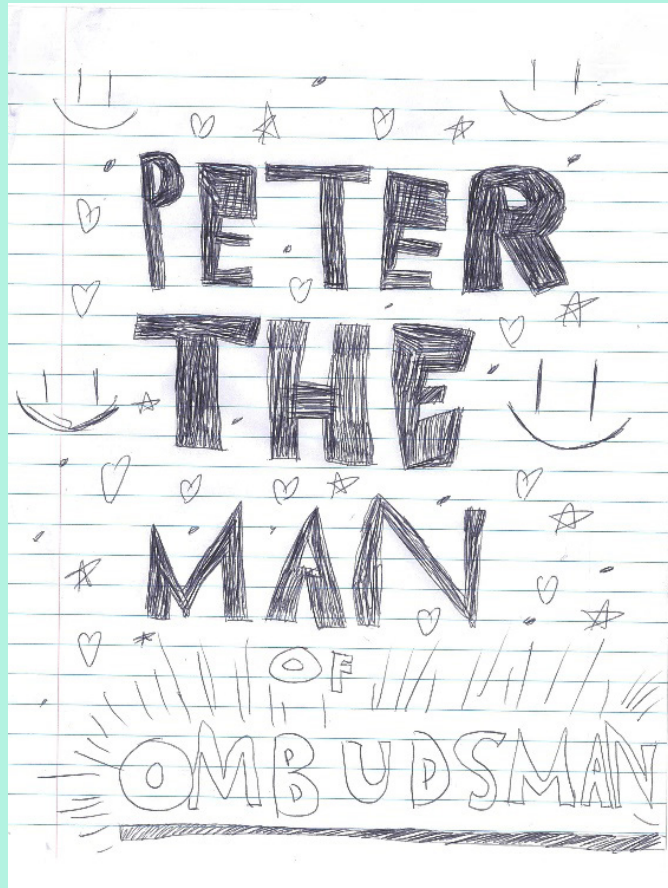 PETER
THE
MAN
OF
OMBUDSMAN